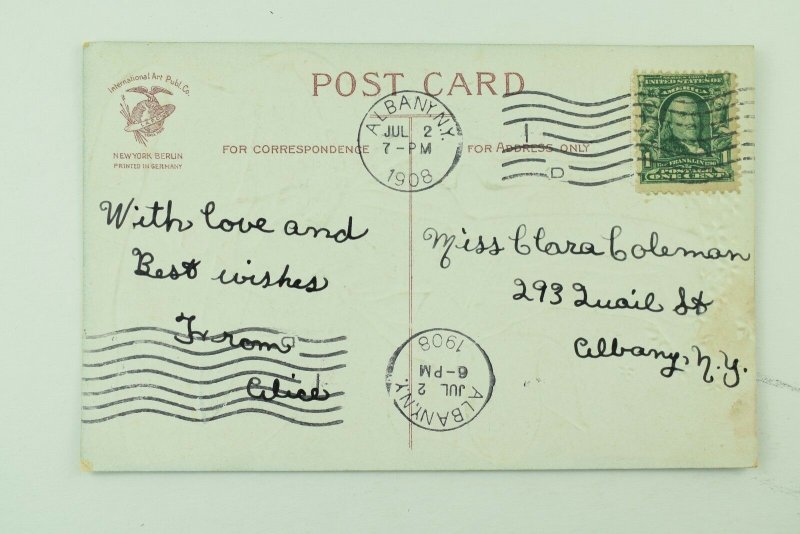 International Art Publ. Co.
NEW YORK-BERLIN
PRINTED IN GERMANY
POST CARD
FOR CORRESPONDENCE
FOR ADDRESS ONLY
ALBANY, N.Y.
JUL 2
7-PM
1908
1
D
SERIES 1902
UNITED STATES OF
AMERICA
FRANKLIN
POSTAGE
ONE CENT
With love and
Best wishes
From
Alice
Miss Clara Coleman
293 Quail St
Albany. N.Y.
ALBANY, N.Y.
JUL 2
6-PM
1908